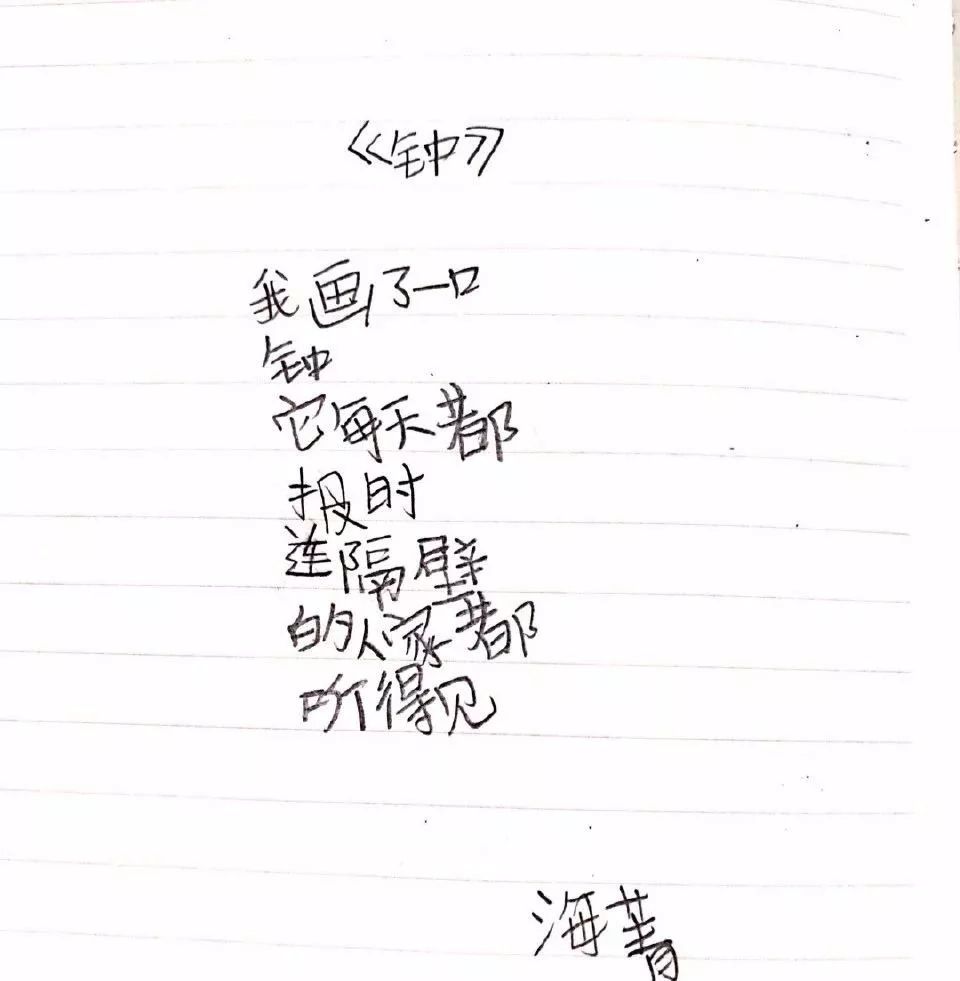 《钟》
我画了一口
钟
它每天都
报时
连隔壁
的人家都
听得见
海菁